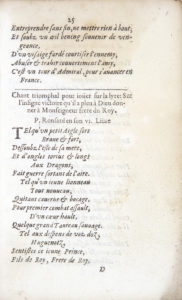 25
Entreprendre sans fin, ne mettre rien à bout,
Et soubz un œil bening souvenir de ven-
geance.
D'un visaige fardé courtiser l'ennemy,
Abuser & trahir couvertement l'amy,
C'est un tour d'Admiral, pour s'avancer en
France.
Chant triomphal pour iouër sur la lyre: Sur
l'insigne victoire qu'il a pleu à Dieu don-
ner à Monseigneur frere du Roy.
P. Ronsard en son vi. Liure
TEl qu'un petit Aigle sort
Braue & fort,
Dessoubz l'esle de sa mere,
Et d'ongles tortus & longz
Aux Dragons,
Fait guerre sortant de l'aire.
Tel qu'un ieune lionneau
Tout nouueau,
Quittant cauerne & bocage,
Pour premier combat assault,
D'un cœur hault,
Quelque grand Taureau sauuage.
Tel aux despens de voz doz,
Huguenotz,
Sentistes ce ieune Prince,
Filz de Roy, Frere de Roy,
D